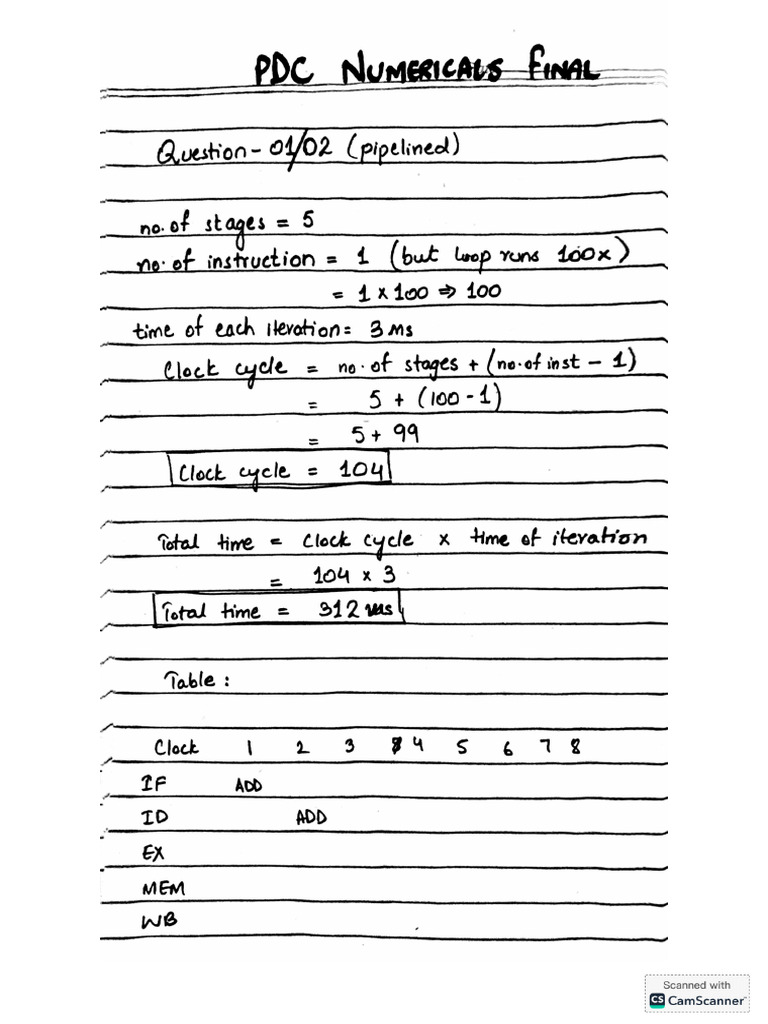 PDC NUMERICALS FINAL
Question - 01/02 (pipelined)
no. of stages = 5
no. of instruction = 1 (but loop runs 100x)
= 1 x 100 ⇒ 100
time of each iteration = 3 ms
Clock cycle = no. of stages + (no. of inst - 1)
= 5 + (100 - 1)
= 5 + 99
Clock cycle = 104
Total time = Clock cycle x time of iteration
= 104 x 3
Total time = 312 ms
Table :
Clock 1 2 3 4 5 6 7 8
IF ADD
ID ADD
EX
MEM
WB
Scanned with
CS CamScanner